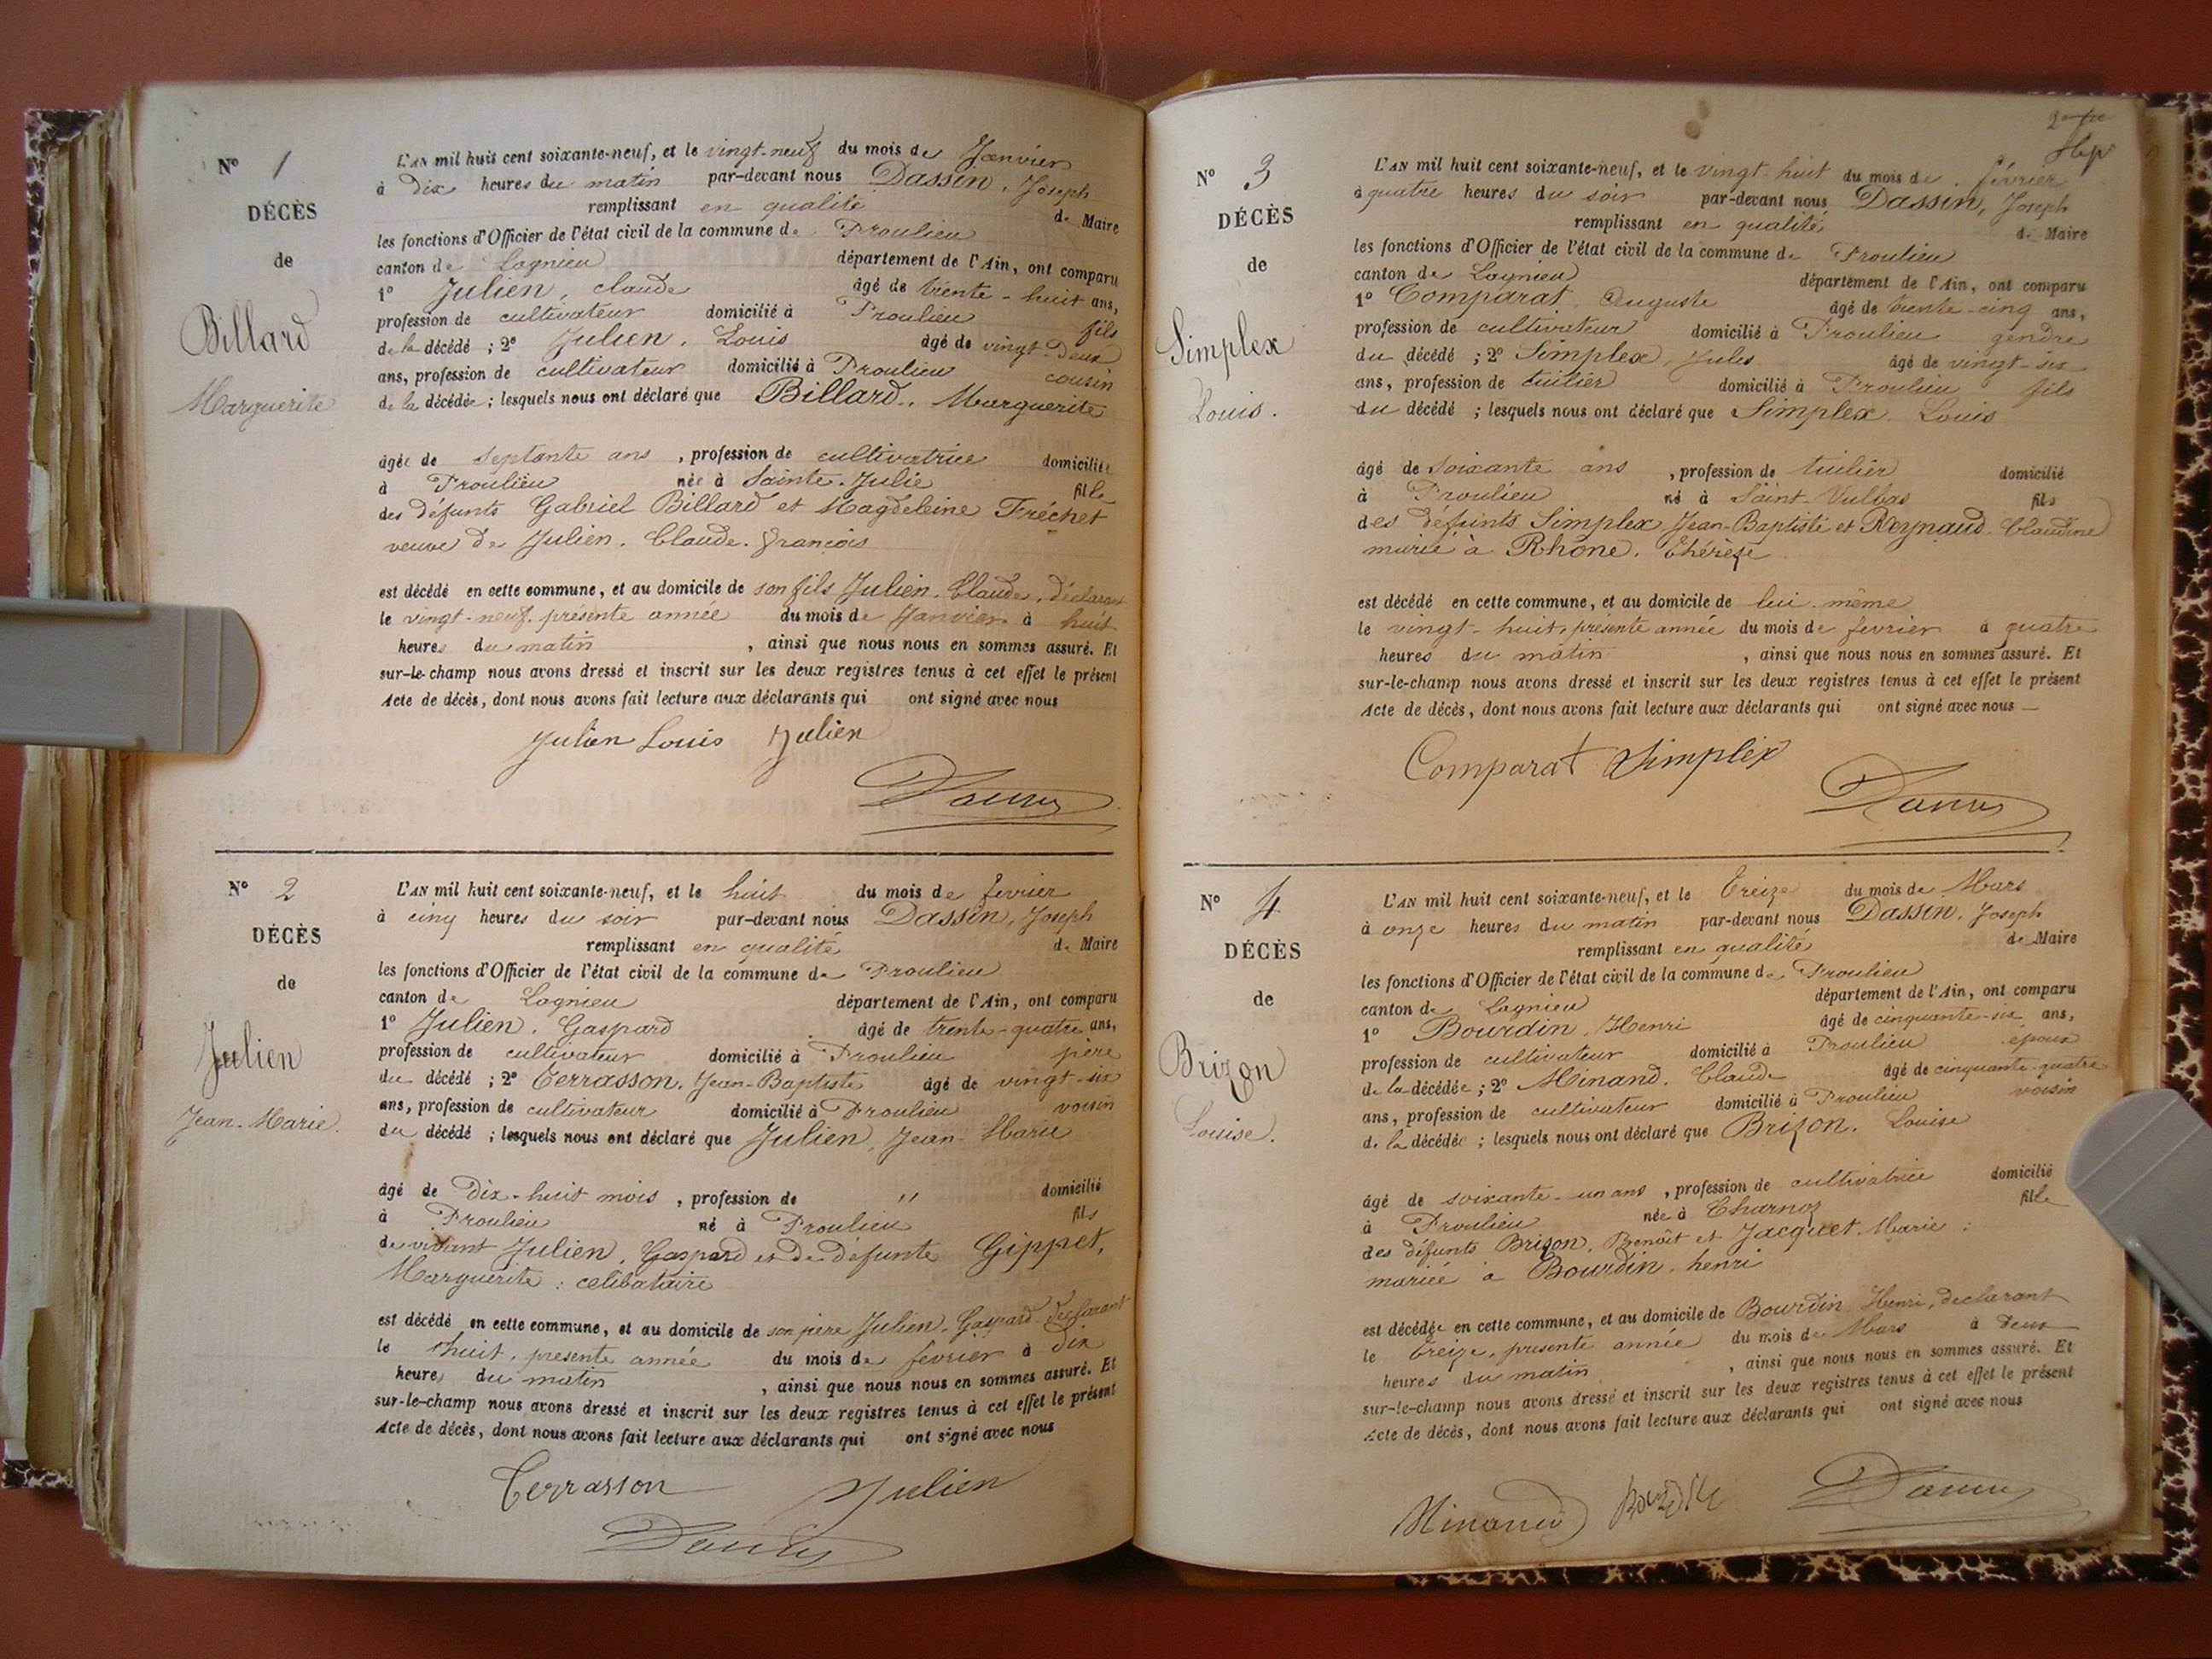 N° 1
DÉCÈS
de
Billard
Marguerite
L'AN mil huit cent soixante-neuf, et le vingt-neuf du mois de Janvier
à dix heures du matin par-devant nous Dassin, Joseph
remplissant en qualité de Maire
les fonctions d'Officier de l'état civil de la commune de Proulieu
canton de Lagnieu département de l'Ain, ont comparu
1° Julien, claude âgé de trente-huit ans,
profession de cultivateur domicilié à Proulieu fils
de la décédé ; 2° Julien, Louis âgé de vingt-deux
ans, profession de cultivateur domicilié à Proulieu cousin
de la décédée ; lesquels nous ont déclaré que Billard, Marguerite
âgée de septante ans , profession de cultivatrice domiciliée
à Proulieu née à Sainte-Julie fille
des défunts Gabriel Billard et Magdeleine Fréchet
veuve de Julien, Claude-françois
est décédé en cette commune, et au domicile de son fils Julien, Claude, déclarant
le vingt-neuf, présente année du mois de Janvier à huit
heures du matin , ainsi que nous nous en sommes assuré. Et
sur-le-champ nous avons dressé et inscrit sur les deux registres tenus à cet effet le présent
Acte de décès, dont nous avons fait lecture aux déclarants qui ont signé avec nous
Julien Louis Julien
N° 2
DÉCÈS
de
Julien
Jean-Marie.
L'AN mil huit cent soixante-neuf, et le huit du mois de fevrier
à cinq heures du soir par-devant nous Dassin, Joseph
remplissant en qualité de Maire
les fonctions d'Officier de l'état civil de la commune de Proulieu
canton de Lagnieu département de l'Ain, ont comparu
1° Julien, Gaspard âgé de trente-quatre ans,
profession de cultivateur domicilié à Proulieu père
du décédé ; 2° Terrasson, Jean-Baptiste âgé de vingt-six
ans, profession de cultivateur domicilié à Proulieu voisin
du décédé ; lesquels nous ont déclaré que Julien, Jean-Marie
âgé de Dix-huit mois , profession de " domicilié
à Proulieu né à Proulieu fils
de vivant Julien, Gaspard et de défunte Gippet,
Marguerite : célibataire
est décédé en cette commune, et au domicile de son père Julien, Gaspard déclarant
le huit, présente année du mois de fevrier à dix
heures du matin , ainsi que nous nous en sommes assuré. Et
sur-le-champ nous avons dressé et inscrit sur les deux registres tenus à cet effet le présent
Acte de décès, dont nous avons fait lecture aux déclarants qui ont signé avec nous
Terrasson Julien
N° 3
DÉCÈS
de
Simplex
Louis.
L'AN mil huit cent soixante-neuf, et le vingt-huit du mois de février
à quatre heures du soir par-devant nous Dassin, Joseph
remplissant en qualité de Maire
les fonctions d'Officier de l'état civil de la commune de Proulieu
canton de Lagnieu département de l'Ain, ont comparu
1° Comparat, Auguste âgé de trente-cinq ans,
profession de cultivateur domicilié à Proulieu gendre
du décédé ; 2° Simplex, Jules âgé de vingt-six
ans, profession de tuilier domicilié à Proulieu fils
du décédé ; lesquels nous ont déclaré que Simplex, Louis
âgé de soixante ans , profession de tuilier domicilié
à Proulieu né à Saint-Vulbas fils
des défunts Simplex, Jean-Baptiste et Reynaud, Claudine
marié à Rhône, Thérèse
est décédé en cette commune, et au domicile de lui-même
le vingt-huit, présente année du mois de fevrier à quatre
heures du matin , ainsi que nous nous en sommes assuré. Et
sur-le-champ nous avons dressé et inscrit sur les deux registres tenus à cet effet le présent
Acte de décès, dont nous avons fait lecture aux déclarants qui ont signé avec nous
Comparat Simplex
N° 4
DÉCÈS
de
Brizon
Louise.
L'AN mil huit cent soixante-neuf, et le treize du mois de Mars
à onze heures du matin par-devant nous Dassin, Joseph
remplissant en qualité de Maire
les fonctions d'Officier de l'état civil de la commune de Proulieu
canton de Lagnieu département de l'Ain, ont comparu
1° Bourdin, Henri âgé de cinquante-six ans,
profession de cultivateur domicilié à Proulieu époux
de la décédée ; 2° Minand, Claude âgé de cinquante-quatre
ans, profession de cultivateur domicilié à Proulieu voisin
de la décédée ; lesquels nous ont déclaré que Brizon, Louise
âgé de soixante-un ans , profession de cultivatrice domicilié
à Proulieu née à Charnoz fille
des défunts Brizon, Benoît et Jacquet, Marie ;
mariée à Bourdin, henri
est décédée en cette commune, et au domicile de Bourdin Henri, déclarant
le treize, présente année du mois de Mars à deux
heures du matin , ainsi que nous nous en sommes assuré. Et
sur-le-champ nous avons dressé et inscrit sur les deux registres tenus à cet effet le présent
Acte de décès, dont nous avons fait lecture aux déclarants qui ont signé avec nous
Minand